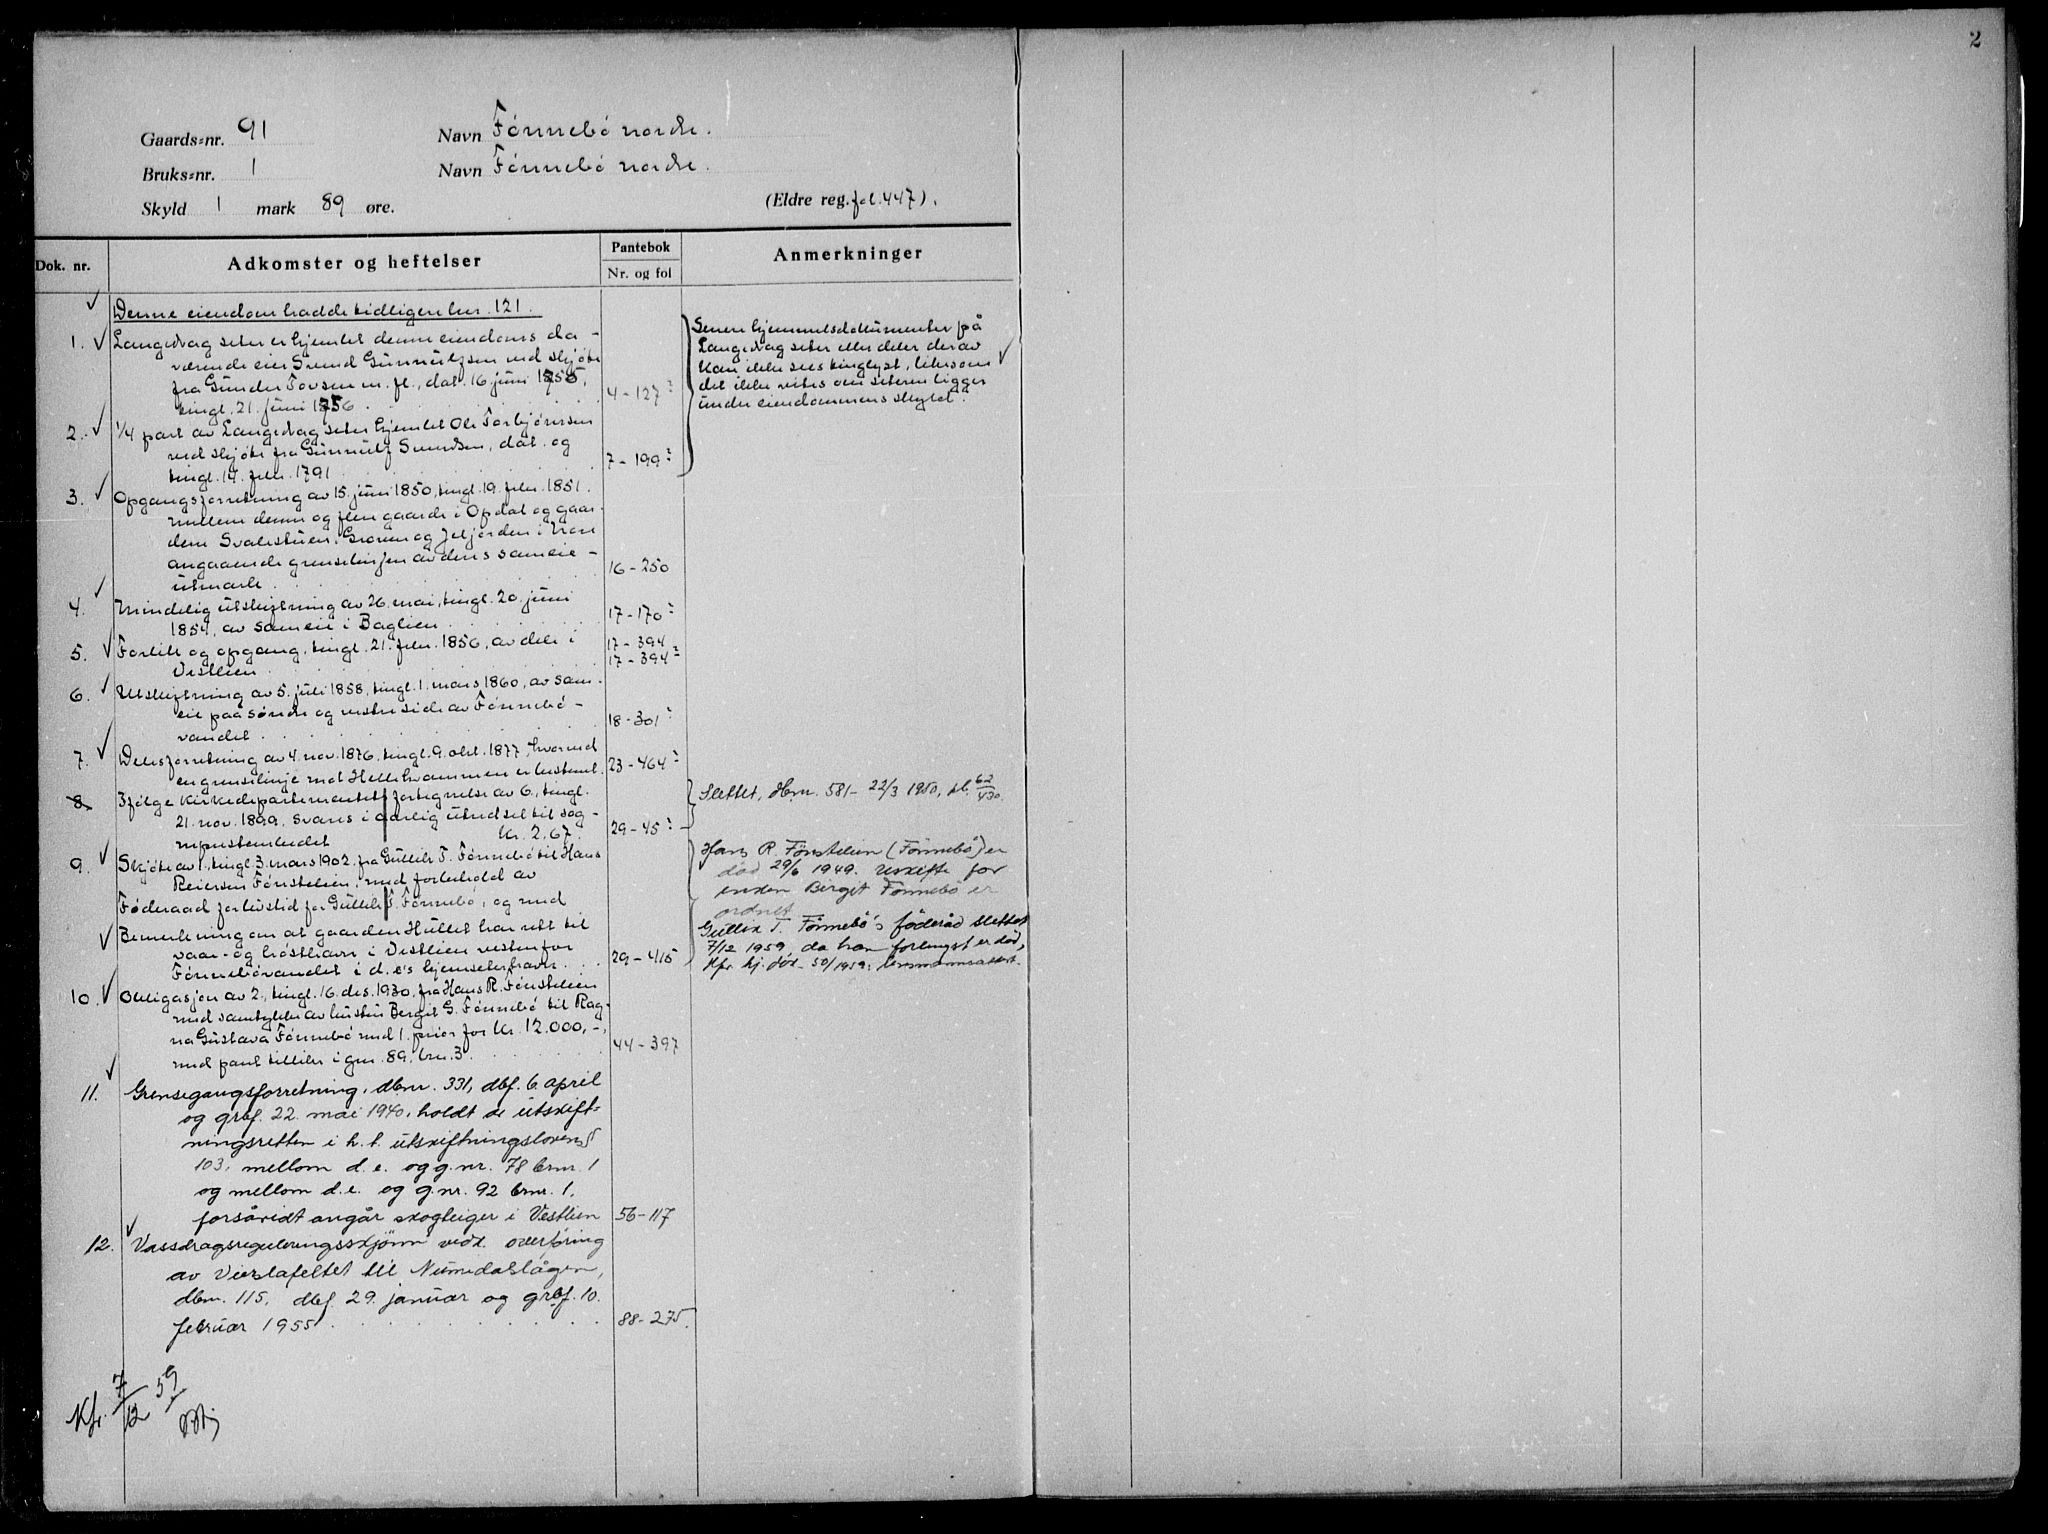 2
Gaards-nr. 91 Navn Fønnebø nordre.
Bruks-nr. 1 Navn Fønnebø nordre.
Skyld 1 mark 89 øre. (Eldre reg. fol. 447).
Dok. nr. Adkomster og heftelser Pantebok Nr. og fol Anmerkninger
Denne eiendom hadde tidligere lnr. 121.
1. Langedrag seter er hjemlet denne eiendoms da-
værende eier Svend Gunnulfsen ved skjøte
fra Gunder Tovsen m. fl., dat. 16. juni 1755,
tingl. 21. juni 1756 4-127
2. 1/4 part av Langedrag seter hjemlet Ole Torbjørnsen
ved skjøte fra Gunnulf Svendsen, dat. og
tingl. 14. febr. 1791 7-199
3. Opgangsforretning av 15. juni 1850, tingl. 19. febr. 1851
mellem denne og flere gaarde i Opdal og gaar-
dene Svalestuen, Groven og Jeljorden i Nore
angaaende grenselinjen av deres sameie-
utmark 16-250
4. Mindelig utskiftning av 26. mai, tingl. 20. juni
1854, av sameie i Baglien 17-170
5. Forlik og opgang, tingl. 21. febr. 1856, av dele i 17-394
Vestlien 17-394
6. Utskiftning av 5. juli 1858, tingl. 1. mars 1860, av sam-
eie paa søndre og vestre side av Fønnebø-
vandet 18-301
7. Delesforretning av 4. nov. 1876, tingl. 9. okt. 1877, hvorved
en grenselinje mot Hellehvammen er bestemt. 23-464
8 Ifølge Kirkedepartementets fortegnelse av 6., tingl.
21. nov. 1899, svares i aarlig utredsel til sog-
nepresteembedet Kr. 2,67. 29-45
9. Skjøte av 1., tingl. 3. mars 1902, fra Gullik T. Fønnebø til Hans
Reiersen Fønstelien, med forbehold av
Føderaad for livstid for Gullik T. Fønnebø, og med
Bemerkning om at gaarden Hullet har ret til
vaar- og høsthavn i Vestlien vestenfor
Fønnebøvandet i d. e's hjemseterhavn. 29-415
10. Obligasjon av 2., tingl. 16. des. 1930, fra Hans R. Fønstelien
med samtykke av hustru Bergit G. Fønnebø til Rag-
na Gustava Fønnebø med 1. prior. for kr. 12.000,-,
med pant tillike i gnr. 89, bnr. 3. 44-397
11. Grensegangsforretning, dbnr. 331, dbf. 6. april
og grbf. 22. mai 1940, holdt av utskift-
ningsretten i h. t. utskiftningslovens §
103, mellom d. e. og g.nr. 78 bnr. 1
og mellom d. e. og g.nr. 92 bnr. 1,
forsåvidt angår skogteiger i Vestlien 56-117
12. Vassdragsreguleringsskjønn vedk. overføring
av Vierslafeltet til Numedalslågen,
dbnr. 115, dbf. 29. januar og grbf. 10.
februar 1955 88-275.
Kfr. 7/12 59
Senere hjemmelsdokumenter på
Langedrag seter eller deler derav
kan ikke sees tinglyst, likesom
det ikke vites om seteren ligger
under eiendommens skyld.
Slettet, dbnr. 581- 22/3 1950, pb. 62/430.
Hans R. Fønstelien (Fønnebø) er
død 29/6 1949. Uskifte for
enken Birgit Fønnebø er
ordnet
Gullik T. Fønnebø's føderåd slettet
7/12 1959, da han forlengst er død,
Kfr. hj. dok. 50/1959: lensmannsattest.